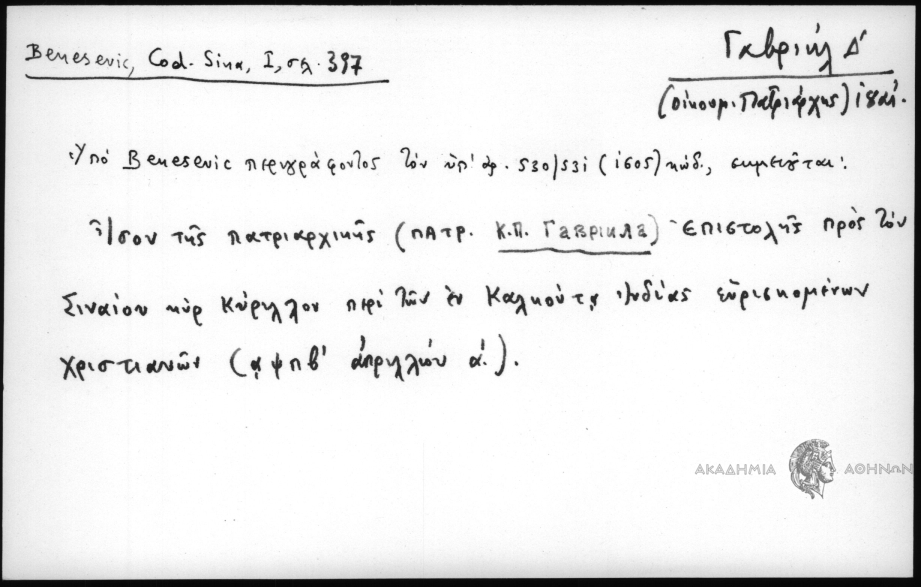 Benesevic, Cod. Sina, I, σελ. 397
Γαβριήλ Δ'
(οικουμ. Πατριάρχης) ιηαι.
Ὑπό Benesevic περιγράφοντος τόν ὑπ' ἀρ. 530/531 (1605) κώδ., σημειοῦται:
Ἴσον τῆς πατριαρχικῆς (ΠΑΤΡ. Κ.Π. ΓΑΒΡΙΗΛΑ) ἐπιστολῆς πρὸς τὸν
Σιναίου κύρ Κύριλλον περί τῶν ἐν Καλκούτᾳ Ἰνδίας εὑρισκομένων
χριστιανῶν (͵αψπβ' ἀπριλλίου ά.).
ΑΚΑΔΗΜΙΑ ΑΘΗΝΩΝ